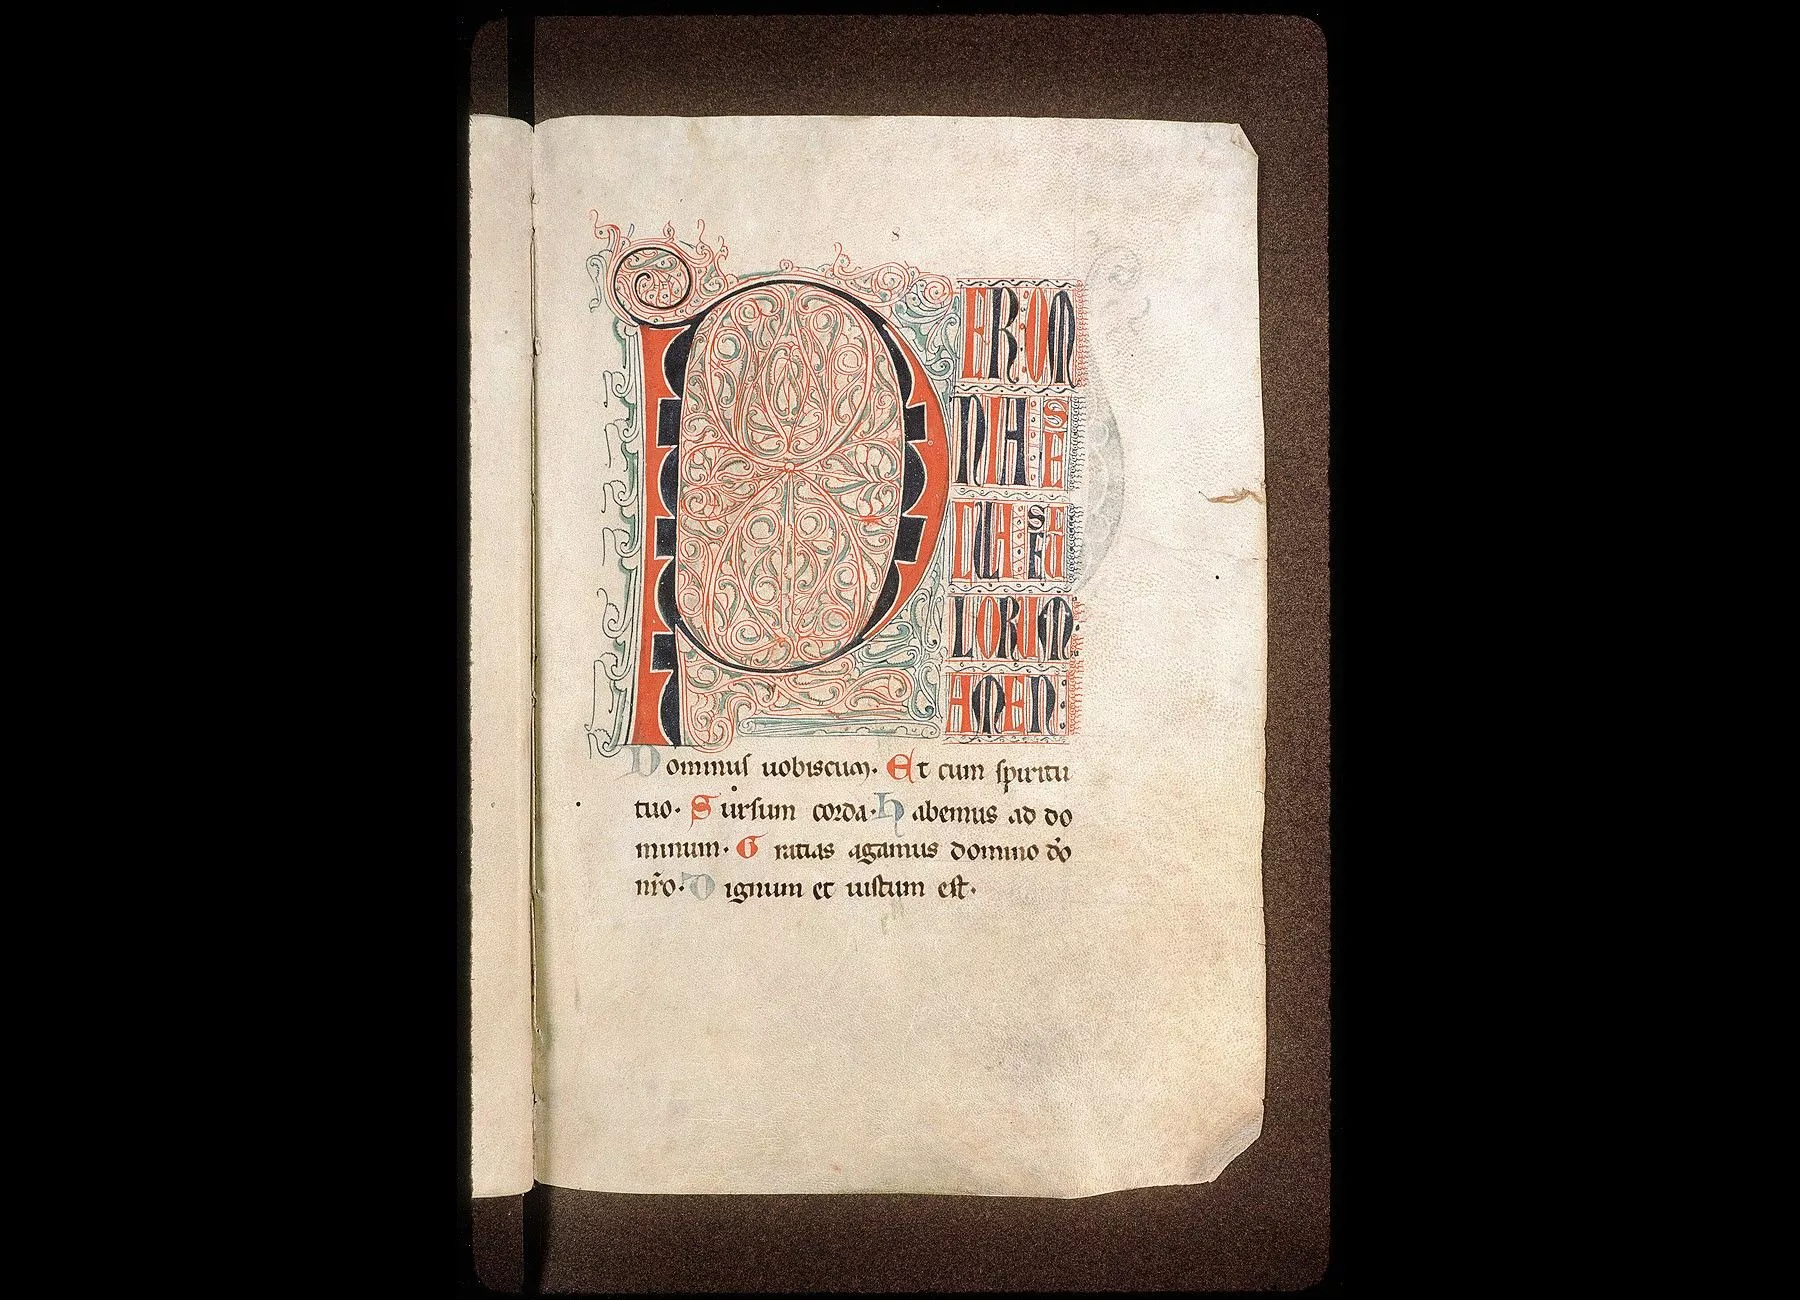 s
PER OM
NIA SE
CULA SE
CU
LORUM
AMEN
Dominus uobiscum. Et cum spiritu
tuo. Sursum corda. Habemus ad do
minum. Gratias agamus domino d̅o
nr̅o. Dignum et iustum est.